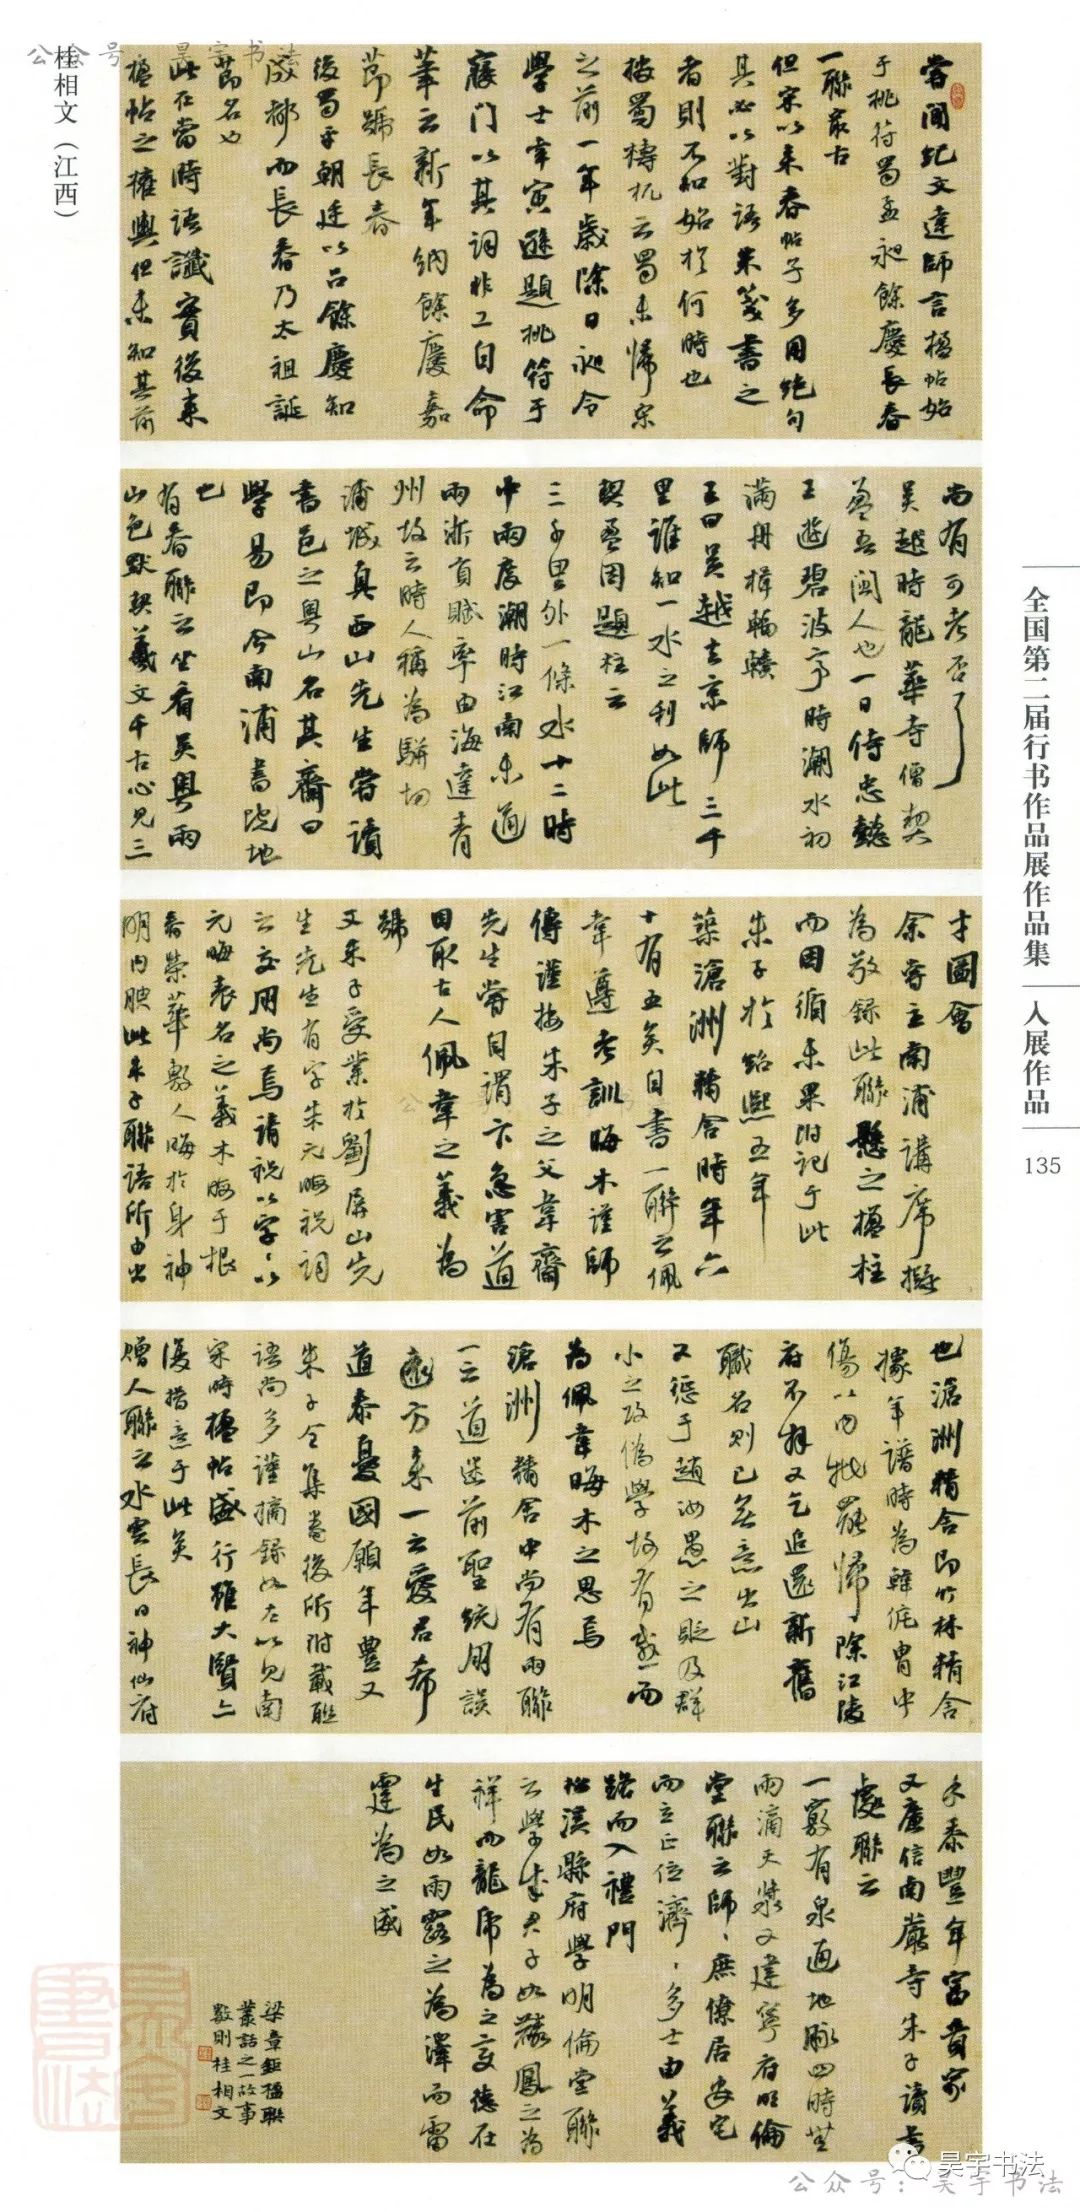 公众号 昊宇书法
桂相文（江西）
嘗聞紀文達師言楹帖始
于桃符蜀孟昶餘慶長春
一聯最古
但宋以来春帖子多用絶句
其必以對語朱箋書之
者則不知始於何時也
按蜀檮杌云蜀未歸宋
之前一年歲除日昶令
學士辛寅遜題桃符于
寢門以其詞非工自命
筆云新年納餘慶嘉
節號長春
後蜀平朝廷以呂餘慶知
成都而長春乃太祖誕
節名也
此在當時語讖實後来
楹帖之權輿但未知其前
尚有可考否
吳越時龍華寺僧契
盈吾閩人也一日侍忠懿
王遊碧波亭時潮水初
滿舟楫輻輳
王曰吳越去京師三千
里誰知一水之利如此
契盈因題柱云
三千里外一條水十二時
中兩度潮時江南未通
兩浙貢賦率由海達青
州故云時人稱為駢切
浦城真西山先生嘗讀
書邑之粤山名其齋曰
學易即今南浦書院地
也
有春聯云坐看吴粤兩
山色默契羲文千古心見三
才圖會
余嘗主南浦講席擬
為敬録此聯懸之楹柱
而因循未果附記于此
朱子於紹熙五年
築滄洲精舍時年六
十有五矣自書一聯云佩
韋遵考訓晦木謹師
傳謹按朱子之父韋齋
先生嘗自謂卞急害道
因取古人佩韋之義為
號
又朱子受業於劉屏山先
生先生有字朱元晦祝詞
云交朋尚焉請祝以字字以
元晦表名之義木晦于根
春榮華敷人晦於身神
明内腴此朱子聯語所由出
也滄洲精舍即竹林精舍
據年譜時為韓侂冑中
傷以内批罷歸歸除江陵
府不拜又乞追還新舊
職名則已無意出山
又惩于趙汝愚之貶及群
小之攻偽學故有感而
為佩韋晦木之思焉
滄洲精舍中尚有兩聯
一云道迷前聖統朋誤
遠方来一云愛君希
道泰憂國願年豐又
朱子全集卷後所附載聯
語尚多謹摘録如左以見南
宋時楹帖盛行雖大賢亦
復措意于此矣
贈人聯云水雲長日神仙府
禾黍豐年富貴家
又廣信南巖寺朱子讀書
處聯云
一竅有泉通地脉四時無
雨滴天漿又建寧府明倫
堂聯云師師庶僚居安宅
而立正位濟濟多士由義
路而入禮門
松溪縣府學明倫堂聯
云學成君子如麟鳳之為
祥而龍虎為之變德在
生民如雨露之為澤而雷
霆為之威
梁章鉅楹聯
叢話之一故事
數則桂相文
全国第二届行书作品展作品集
入展作品
135
昊宇書法
昊宇书法
公众号：昊宇书法